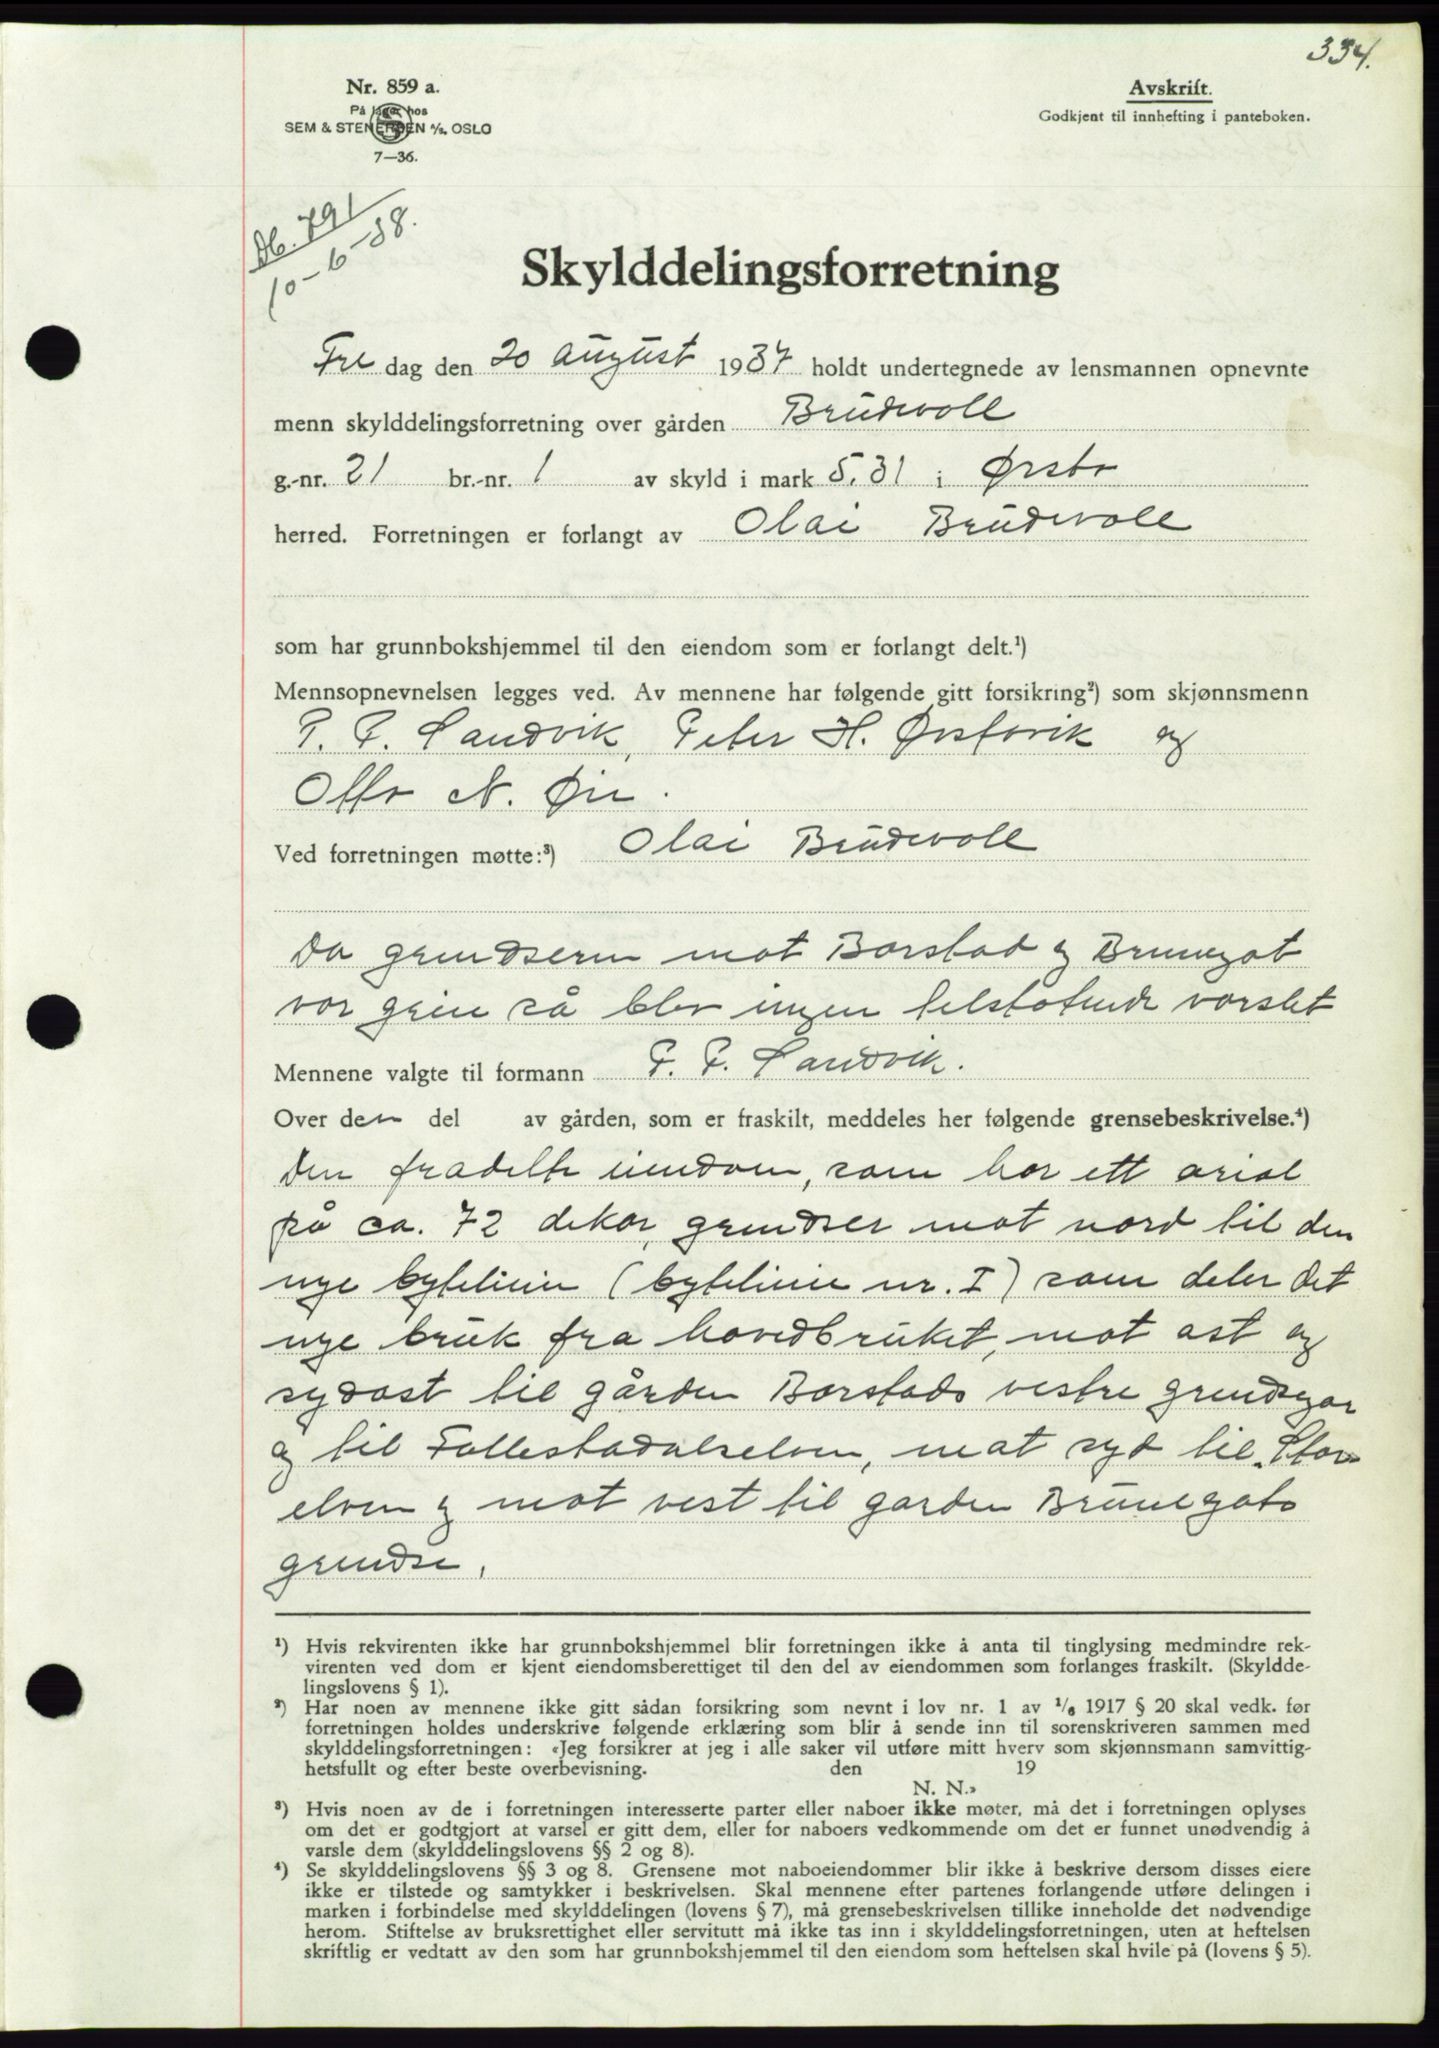 334.
Nr. 859 a.
På lager hos
SEM & STENERSEN A/S, OSLO
7—36.
Avskrift.
Godkjent til innhefting i panteboken.
Db. 791
10-6-38.
Skylddelingsforretning
Fre dag den 20 august 1937 holdt undertegnede av lensmannen opnevnte
menn skylddelingsforretning over gården Brudevoll
g.-nr. 21 br.-nr. 1 av skyld i mark 5,31 i Ørsta
herred. Forretningen er forlangt av Olai Brudevoll
som har grunnbokshjemmel til den eiendom som er forlangt delt.¹)
Mennsopnevnelsen legges ved. Av mennene har følgende gitt forsikring²) som skjønnsmenn
P. P. Sandvik, Peter H. Ørstavik og
Otto N. Øie.
Ved forretningen møtte:³) Olai Brudevoll
Da grendsern mot Borstad og Brunegot
var grei så blev ingen tilstøtende varslet
Mennene valgte til formann P. P. Sandvik.
Over den del av gården, som er fraskilt, meddeles her følgende grensebeskrivelse.⁴)
Den fradelte eiendom, som har ett arial
på ca. 72 dekar, grendser mot nord til den
nye bytelinie (bytelinie nr. I) som deler det
nye bruk fra hovedbruket, mot ast og
sydost til gården Borstads vestre grendsegar
og til Follestadalselven, mot syd til Stor-
elven og mot vest til garden Brunegots
grendse.
¹) Hvis rekvirenten ikke har grunnbokshjemmel blir forretningen ikke å anta til tinglysing medmindre rek-
virenten ved dom er kjent eiendomsberettiget til den del av eiendommen som forlanges fraskilt. (Skyldde-
lingslovens § 1).
²) Har noen av mennene ikke gitt sådan forsikring som nevnt i lov nr. 1 av 1/6 1917 § 20 skal vedk. før
forretningen holdes underskrive følgende erklæring som blir å sende inn til sorenskriveren sammen med
skylddelingsforretningen: «Jeg forsikrer at jeg i alle saker vil utføre mitt hverv som skjønnsmann samvittig-
hetsfullt og efter beste overbevisning. den 19
N. N.»
³) Hvis noen av de i forretningen interesserte parter eller naboer ikke møter, må det i forretningen oplyses
om det er godtgjort at varsel er gitt dem, eller for naboers vedkommende om det er funnet unødvendig å
varsle dem (skylddelingslovens §§ 2 og 8).
⁴) Se skylddelingslovens §§ 3 og 8. Grensene mot naboeiendommer blir ikke å beskrive dersom disses eiere
ikke er tilstede og samtykker i beskrivelsen. Skal mennene efter partenes forlangende utføre delingen i
marken i forbindelse med skylddelingen (lovens § 7), må grensebeskrivelsen tillike inneholde det nødvendige
herom. Stiftelse av bruksrettighet eller servitutt må ikke tas inn i skylddelingsforretningen, uten at heftelsen
skriftlig er vedtatt av den som har grunnbokshjemmel til den eiendom som heftelsen skal hvile på (lovens § 5).